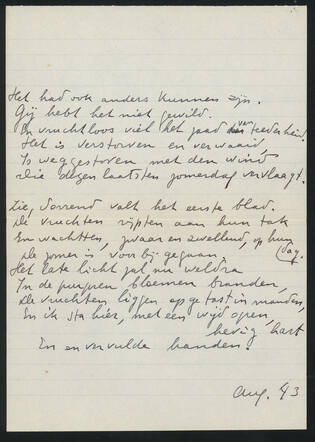 Het had ook anders kunnen zijn.
Gij hebt het niet gewild.
En vruchtloos viel het zaad van teederheid.
Het is verstorven en verwaaid,
Is weggestoven met den wind
die dezen laatsten zomerdag vervlaagt.
Zie, dorrend valt het eerste blad.
De vruchten rijpten aan hun tak
En wachtten, zwaar en zwellend, op hun dag.
De zomer is voorbij gegaan.
Het late licht zal nu weldra
In de purpren bloemen branden,
De vruchten liggen opgetast in manden,
En ik sta hier, met een wijd open,
hevig hart
En onvervulde handen.
Aug. 43